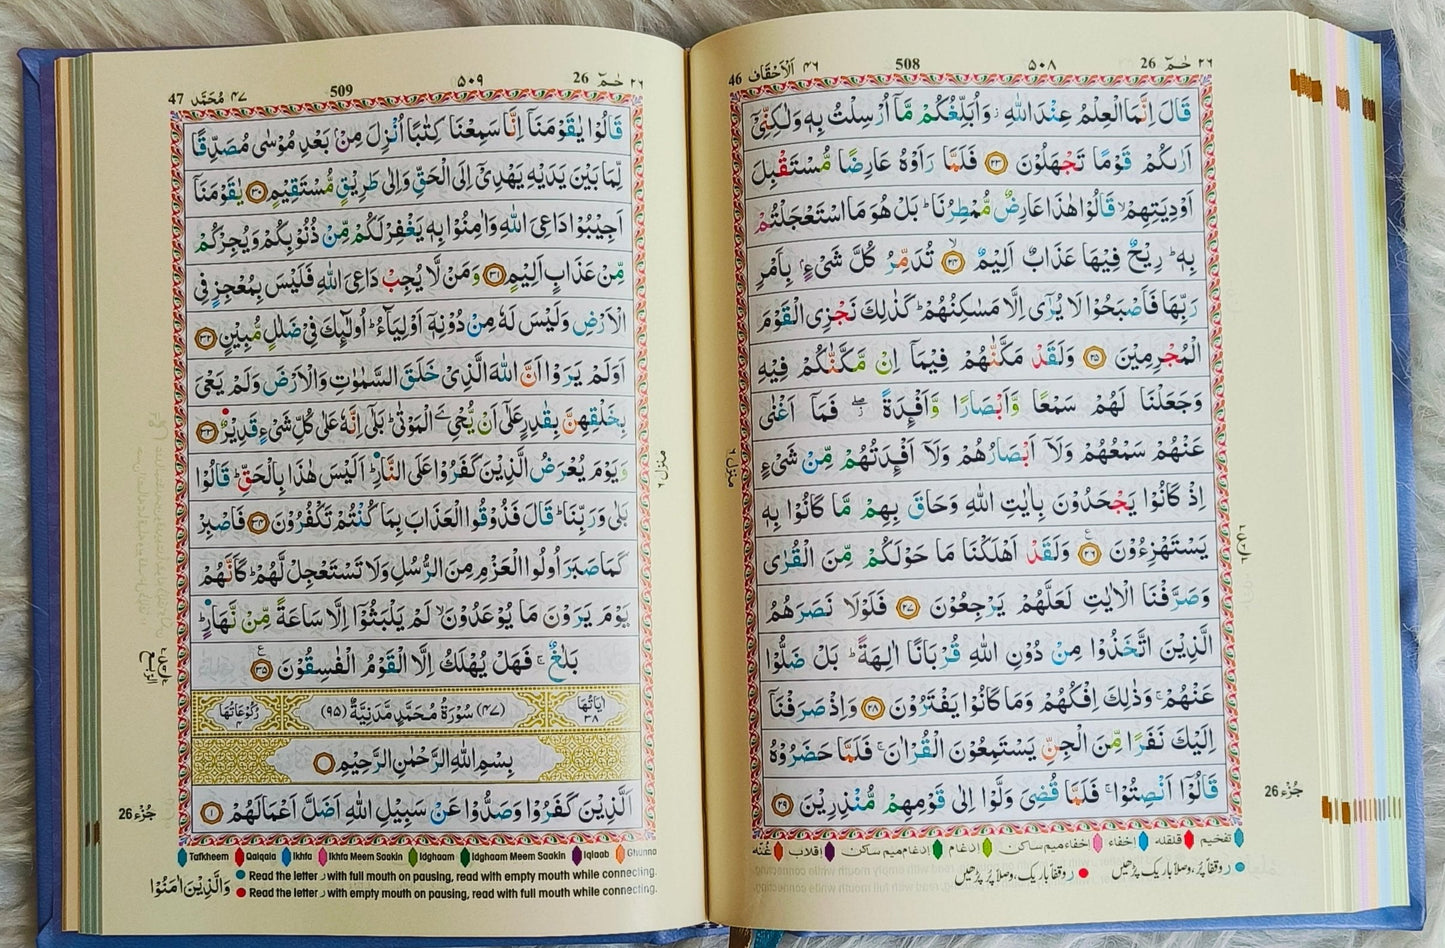 ٢٦ حٰمٓ 26
٥٠٨
508
٤٦ اَلْاَحْقَاف 46
قَالَ اِنَّمَا الْعِلْمُ عِنْدَ اللّٰهِ ۖ وَاُبَلِّغُكُمْ مَّاۤ اُرْسِلْتُ بِهٖ وَلٰكِنِّیْۤ
اَرٰىكُمْ قَوْمًا تَجْهَلُوْنَ ﴿٢٣﴾ فَلَمَّا رَاَوْهُ عَارِضًا مُّسْتَقْبِلَ
اَوْدِیَتِهِمْ ۙ قَالُوْا هٰذَا عَارِضٌ مُّمْطِرُنَا ؕ بَلْ هُوَ مَا اسْتَعْجَلْتُمْ
بِهٖ ؕ رِیْحٌ فِیْهَا عَذَابٌ اَلِیْمٌ ﴿٢٤﴾ۙ تُدَمِّرُ كُلَّ شَیْءٍۭ بِاَمْرِ
رَبِّهَا فَاَصْبَحُوْا لَا یُرٰۤی اِلَّا مَسٰكِنُهُمْ ؕ كَذٰلِكَ نَجْزِی الْقَوْمَ
الْمُجْرِمِیْنَ ﴿٢٥﴾ وَلَقَدْ مَكَّنّٰهُمْ فِیْمَاۤ اِنْ مَّكَّنّٰكُمْ فِیْهِ
وَجَعَلْنَا لَهُمْ سَمْعًا وَّاَبْصَارًا وَّاَفْـِٕدَةً ۖ فَمَاۤ اَغْنٰی
عَنْهُمْ سَمْعُهُمْ وَلَاۤ اَبْصَارُهُمْ وَلَاۤ اَفْـِٕدَتُهُمْ مِّنْ شَیْءٍ
اِذْ كَانُوْا یَجْحَدُوْنَ بِاٰیٰتِ اللّٰهِ وَحَاقَ بِهِمْ مَّا كَانُوْا بِهٖ
یَسْتَهْزِءُوْنَ ﴿٢٦﴾ وَلَقَدْ اَهْلَكْنَا مَا حَوْلَكُمْ مِّنَ الْقُرٰی
وَصَرَّفْنَا الْاٰیٰتِ لَعَلَّهُمْ یَرْجِعُوْنَ ﴿٢٧﴾ فَلَوْلَا نَصَرَهُمُ
الَّذِیْنَ اتَّخَذُوْا مِنْ دُوْنِ اللّٰهِ قُرْبَانًا اٰلِهَةً ؕ بَلْ ضَلُّوْا
عَنْهُمْ ۚ وَذٰلِكَ اِفْكُهُمْ وَمَا كَانُوْا یَفْتَرُوْنَ ﴿٢٨﴾ وَاِذْ صَرَفْنَاۤ
اِلَیْكَ نَفَرًا مِّنَ الْجِنِّ یَسْتَمِعُوْنَ الْقُرْاٰنَ ۚ فَلَمَّا حَضَرُوْهُ
قَالُوْۤا اَنْصِتُوْا ۚ فَلَمَّا قُضِیَ وَلَّوْا اِلٰی قَوْمِهِمْ مُّنْذِرِیْنَ ﴿٢٩﴾
منزل ٦
جُزْء 26
تفخیم قلقلہ اخفاء اخفاء میم ساکن ادغام ادغام میم ساکن اقلاب غُنّہ
ر وقفاً پُر، وصلاً باریک پڑھیں
ر وقفاً باریک، وصلاً پُر پڑھیں
26 حٰمٓ ٢٦
٥٠٩
509
٤٧ مُحَمَّد 47
قَالُوْا یٰقَوْمَنَاۤ اِنَّا سَمِعْنَا كِتٰبًا اُنْزِلَ مِنْۢ بَعْدِ مُوْسٰی مُصَدِّقًا
لِّمَا بَیْنَ یَدَیْهِ یَهْدِیْۤ اِلَی الْحَقِّ وَاِلٰی طَرِیْقٍ مُّسْتَقِیْمٍ ﴿٣٠﴾ یٰقَوْمَنَاۤ
اَجِیْبُوْا دَاعِیَ اللّٰهِ وَاٰمِنُوْا بِهٖ یَغْفِرْ لَكُمْ مِّنْ ذُنُوْبِكُمْ وَیُجِرْكُمْ
مِّنْ عَذَابٍ اَلِیْمٍ ﴿٣١﴾ وَمَنْ لَّا یُجِبْ دَاعِیَ اللّٰهِ فَلَیْسَ بِمُعْجِزٍ فِی
الْاَرْضِ وَلَیْسَ لَهٗ مِنْ دُوْنِهٖۤ اَوْلِیَآءُ ؕ اُولٰٓىِٕكَ فِیْ ضَلٰلٍ مُّبِیْنٍ ﴿٣٢﴾
اَوَلَمْ یَرَوْا اَنَّ اللّٰهَ الَّذِیْ خَلَقَ السَّمٰوٰتِ وَالْاَرْضَ وَلَمْ یَعْیَ
بِخَلْقِهِنَّ بِقٰدِرٍ عَلٰۤی اَنْ یُّحْیِۦَ الْمَوْتٰی ؕ بَلٰۤی اِنَّهٗ عَلٰی كُلِّ شَیْءٍ قَدِیْرٌ ﴿٣٣﴾
وَیَوْمَ یُعْرَضُ الَّذِیْنَ كَفَرُوْا عَلَی النَّارِ ؕ اَلَیْسَ هٰذَا بِالْحَقِّ ؕ قَالُوْا
بَلٰی وَرَبِّنَا ؕ قَالَ فَذُوْقُوا الْعَذَابَ بِمَا كُنْتُمْ تَكْفُرُوْنَ ﴿٣٤﴾ فَاصْبِرْ
كَمَا صَبَرَ اُولُوا الْعَزْمِ مِنَ الرُّسُلِ وَلَا تَسْتَعْجِلْ لَّهُمْ ؕ كَاَنَّهُمْ
یَوْمَ یَرَوْنَ مَا یُوْعَدُوْنَ ۙ لَمْ یَلْبَثُوْۤا اِلَّا سَاعَةً مِّنْ نَّهَارٍ ؕ
بَلٰغٌ ۚ فَهَلْ یُهْلَكُ اِلَّا الْقَوْمُ الْفٰسِقُوْنَ ﴿٣٥﴾
اٰیَاتُهَا ٣٨
(٤٧) سُوْرَةُ مُحَمَّدٍ مَّدَنِیَّةٌ (٩٥)
رُكُوْعَاتُهَا ٤
بِسْمِ اللّٰهِ الرَّحْمٰنِ الرَّحِیْمِ
اَلَّذِیْنَ كَفَرُوْا وَصَدُّوْا عَنْ سَبِیْلِ اللّٰهِ اَضَلَّ اَعْمَالَهُمْ ﴿١﴾
منزل ٦
الرّبع
جُزْء 26
Tafkheem Qalqala Ikhfa Ikhfa Meem Saakin Idghaam Idghaam Meem Saakin Iqlaab Ghunna
Read the letter ر with full mouth on pausing, read with empty mouth while connecting.
Read the letter ر with empty mouth on pausing, read with full mouth while connecting.
وَالَّذِیْنَ اٰمَنُوْا